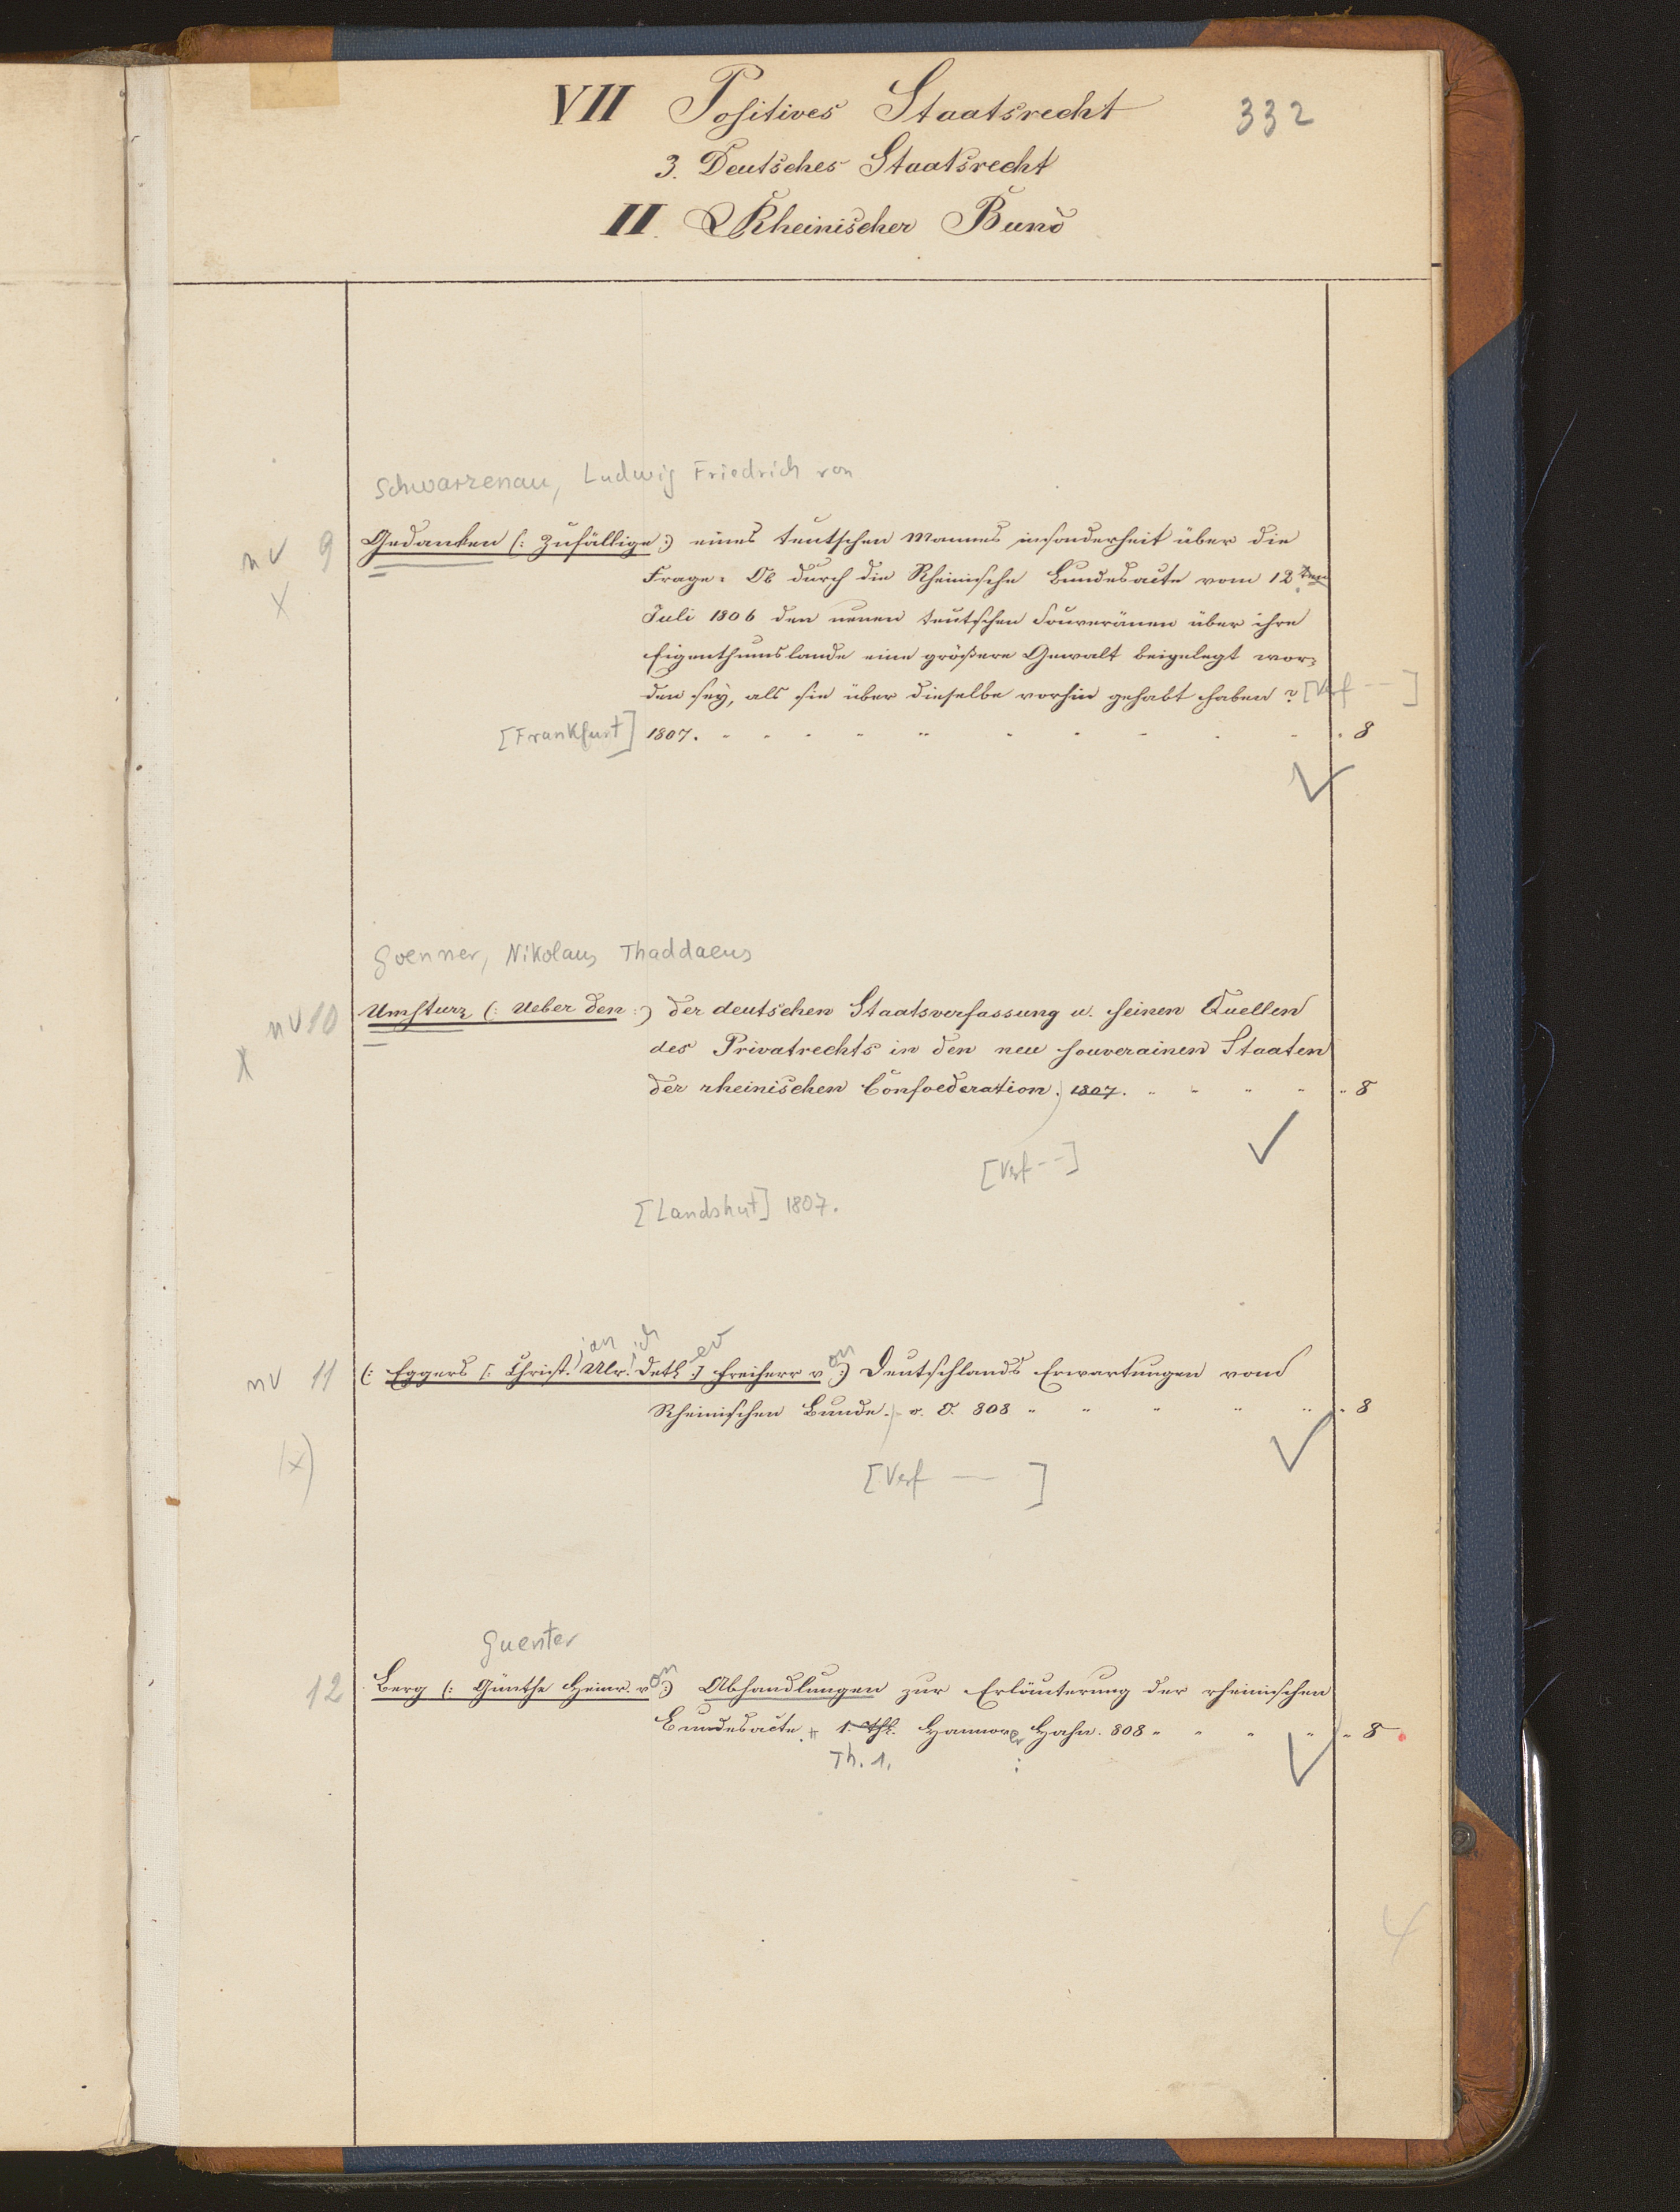 VII Positives Staatsrecht 332
3. Deutsches Staatsrecht
II. Rheinischer Bund
Schwarzenau, Ludwig Friedrich von
nv 9 Gedanken (: Zufällige :) eines teutschen Mannes insonderheit über die
x Frage: Ob durch die Rheinische Bundesacte vom 12ten
Juli 1806 den neuen teutschen Souveränen über ihre
Eigenthumslande eine größere Gewalt beigelegt wor=
den sey, als sie über dieselbe vorhin gehabt haben? [Verf — ]
[Frankfurt] 1807. 8
Goenner, Nikolaus Thaddaeus
nv 10 Umsturz (: Ueber den :) der deutschen Staatsverfassung u. seinen Quellen
x des Privatrechts in den neu souverainen Staaten
der rheinischen Confoederation. 1807. 8
[Verf -- ]
[Landshut] 1807.
ian ich lev on
nv 11 (: Eggers [: Christ. Ulr. Detl :] Freiherr v :) Deutschlands Erwartungen vom
Rheinischen Bunde. o. O. 808 8
(x) [Verf — ]
Guenter
12 Berg (: Günthe Heinr. von :) Abhandlungen zur Erläuterung der rheinischen
Bundesacte. 1. Th. Hannover Hahn. 808 8
Th. 1.
4